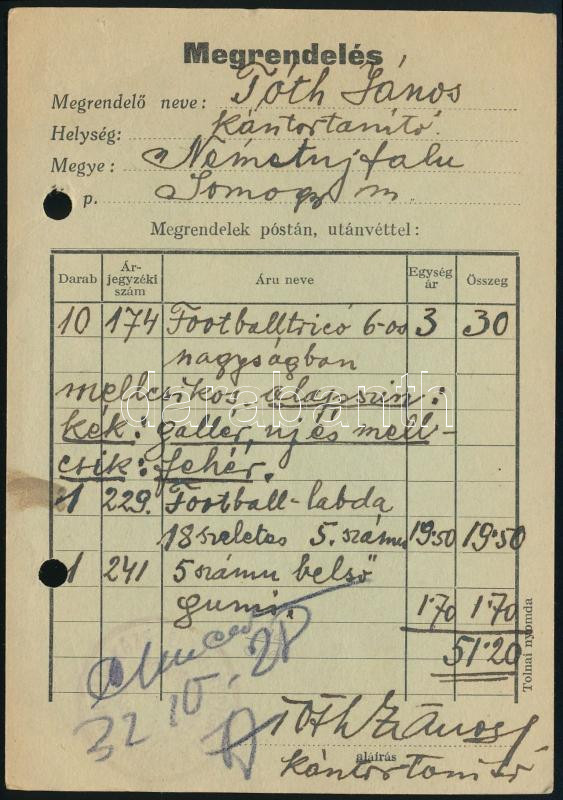 Megrendelés
Megrendelő neve: Tóth János
Helység: kántortanító.
Megye: Németujfalu
p. Somogy m.
Megrendelek póstán, utánvéttel:
Darab Ár-jegyzéki szám Áru neve Egység ár Összeg
10 174 Footballtricó 6-os 3 30
nagyságban
mellcsikos, alapszin:
kék: gallér, uj és mell-
csik: fehér.
1 229. Football-labda
18 szeletes 5. számu 19.50 19.50
1 241 5 számu belső
gumi. 1.70 1.70
51.20
darabanth
Tolnai nyomda
32 IV. 28
Tóth János
aláírás
kántortanító